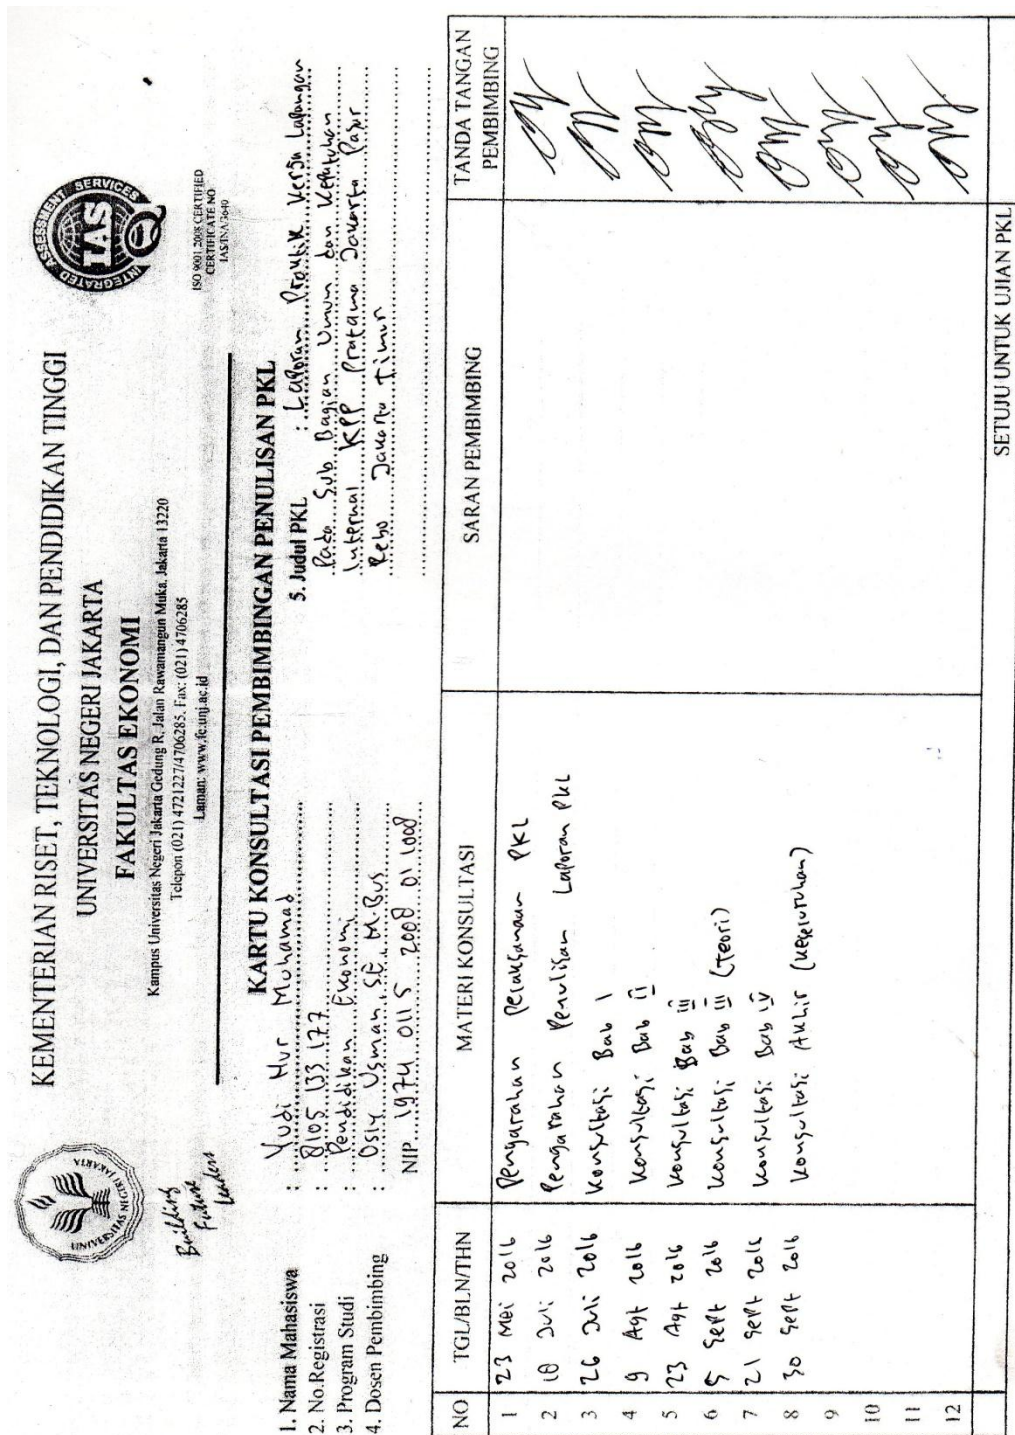 KEMENTERIAN RISET, TEKNOLOGI, DAN PENDIDIKAN TINGGI
UNIVERSITAS NEGERI JAKARTA
FAKULTAS EKONOMI
Kampus Universitas Negeri Jakarta Gedung R, Jalan Rawamangun Muka, Jakarta 13220
Telepon (021) 4721227/4706285. Fax: (021) 4706285
Laman: www.fe.unj.ac.id
UNIVERSITAS NEGERI JAKARTA
Building
Future
Leaders
INTEGRATED ASSESSMENT SERVICES
IAS
ISO 9001:2008 CERTIFIED
CERTIFICATE NO
IAS/INA/3640
KARTU KONSULTASI PEMBIMBINGAN PENULISAN PKL
1. Nama Mahasiswa : Yudi Nur Muhamad
2. No.Registrasi : 8105 133 177
3. Program Studi : Pendidikan Ekonomi
4. Dosen Pembimbing : Osly Usman, S.E, M.Bus
NIP. 1974 0115 2008 01 1008
5. Judul PKL : Laporan Praktik Kerja Lapangan
Pada Sub Bagian Umum dan Kepatuhan
Internal KPP Pratama Jakarta Pasar
Rebo Jakarta Timur
NO TGL/BLN/THN MATERI KONSULTASI SARAN PEMBIMBING TANDA TANGAN PEMBIMBING
1 23 Mei 2016 Pengarahan Pelaksanaan PKL
2 18 Juli 2016 Pengarahan Penulisan Laporan PKL
3 26 Juli 2016 Konsultasi Bab I
4 9 Agt 2016 Konsultasi Bab II
5 23 Agt 2016 Konsultasi Bab III
6 5 Sept 2016 Konsultasi Bab III (Teori)
7 21 Sept 2016 Konsultasi Bab IV
8 30 Sept 2016 Konsultasi Akhir (Keseluruhan)
9
10
11
12
SETUJU UNTUK UJIAN PKL